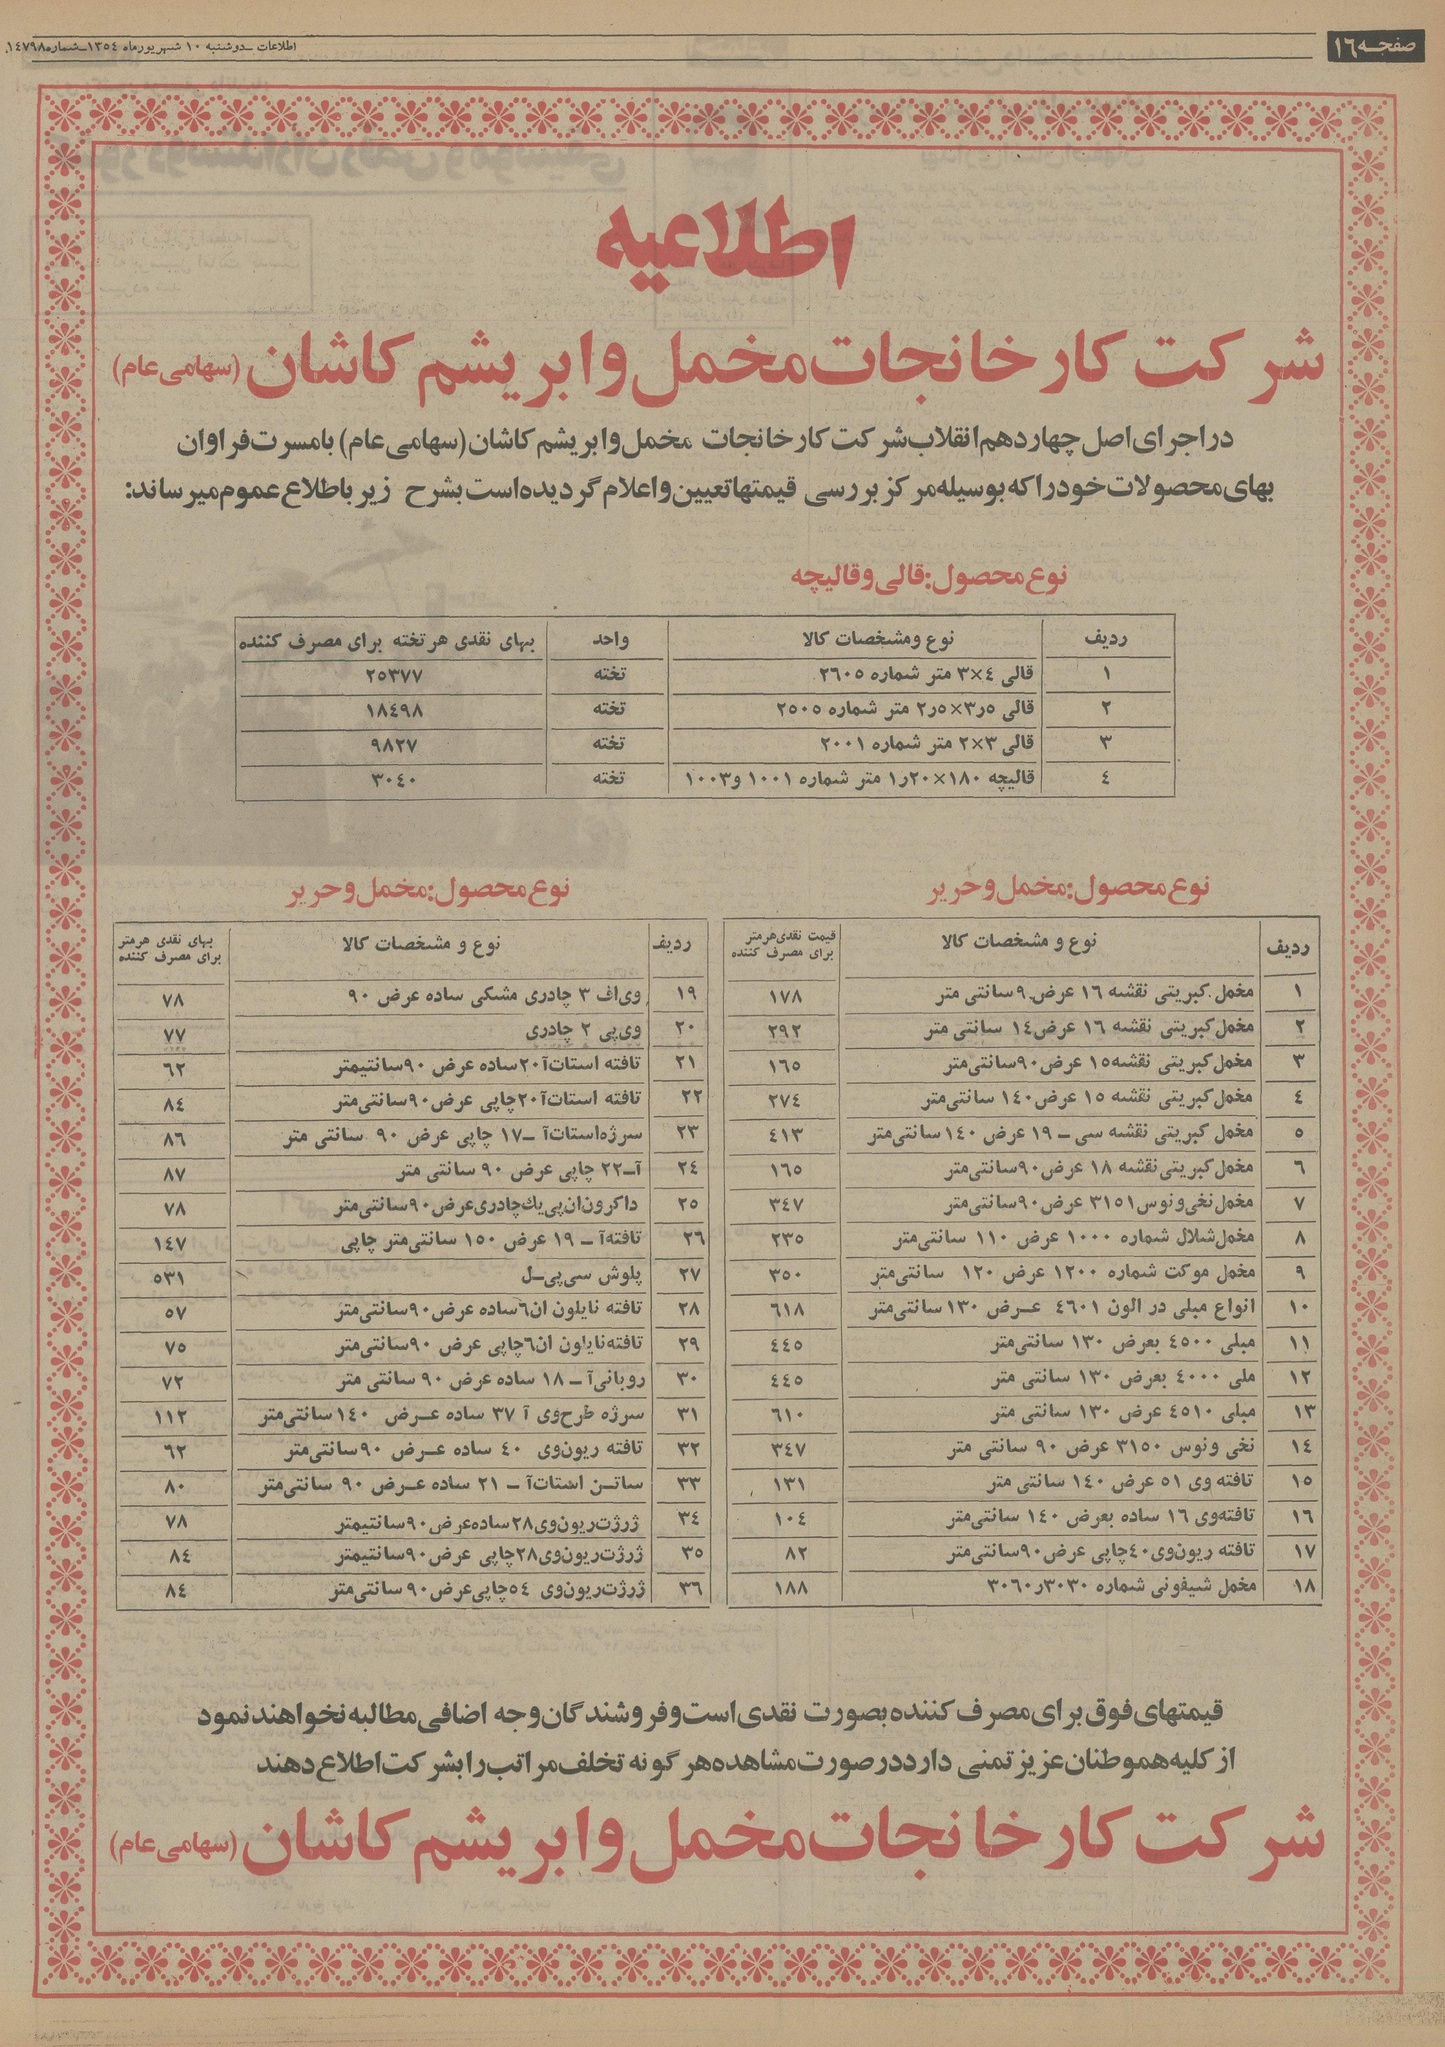 صفحه ۱۶
اطلاعات ـ دوشنبه ۱۰ شهریورماه ۱۳۵۴ ـ شماره ۱۴۷۹۸
اطلاعیه
شرکت کارخانجات مخمل و ابریشم کاشان (سهامی عام)
در اجرای اصل چهاردهم انقلاب شرکت کارخانجات مخمل و ابریشم کاشان (سهامی عام) بامسرت فراوان
بهای محصولات خود را که بوسیله مرکز بررسی قیمتها تعیین و اعلام گردیده است بشرح زیر باطلاع عموم میرساند:
نوع محصول: قالی و قالیچه
ردیف نوع ومشخصات کالا واحد بهای نقدی هر تخته برای مصرف کننده
۱ قالی ۴×۳ متر شماره ۲۶۰۵ تخته ۲۵۳۷۷
۲ قالی ۳٫۵×۲٫۵ متر شماره ۲۵۰۵ تخته ۱۸۴۹۸
۳ قالی ۳×۲ متر شماره ۲۰۰۱ تخته ۹۸۲۷
۴ قالیچه ۱۸۰×۱٫۲۰ متر شماره ۱۰۰۱ و۱۰۰۳ تخته ۳۰۴۰
نوع محصول: مخمل و حریر
ردیف نوع و مشخصات کالا قیمت نقدی هرمتر برای مصرف کننده
۱ مخمل کبریتی نقشه ۱۶ عرض ۹۰ سانتی متر ۱۷۸
۲ مخمل کبریتی نقشه ۱۶ عرض ۱۴ سانتی متر ۲۹۲
۳ مخمل کبریتی نقشه ۱۵ عرض ۹۰ سانتی‌متر ۱۶۵
۴ مخمل کبریتی نقشه ۱۵ عرض ۱۴۰ سانتی‌متر ۲۷۴
۵ مخمل کبریتی نقشه سی ـ ۱۹ عرض ۱۴۰ سانتی‌متر ۴۱۳
۶ مخمل کبریتی نقشه ۱۸ عرض ۹۰ سانتی‌متر ۱۶۵
۷ مخمل نخی ونوس ۳۱۵۱ عرض ۹۰ سانتی‌متر ۳۴۷
۸ مخمل شلال شماره ۱۰۰۰ عرض ۱۱۰ سانتی‌متر ۲۳۵
۹ مخمل موکت شماره ۱۲۰۰ عرض ۱۲۰ سانتی‌متر ۳۵۰
۱۰ انواع مبلی در الون ۴۶۰۱ عرض ۱۳۰ سانتی‌متر ۶۱۸
۱۱ مبلی ۴۵۰۰ بعرض ۱۳۰ سانتی‌متر ۴۴۵
۱۲ ملی ۴۰۰۰ بعرض ۱۳۰ سانتی متر ۴۴۵
۱۳ مبلی ۴۵۱۰ عرض ۱۳۰ سانتی متر ۶۱۰
۱۴ نخی ونوس ۳۱۵۰ عرض ۹۰ سانتی متر ۳۴۷
۱۵ تافته وی ۵۱ عرض ۱۴۰ سانتی متر ۱۳۱
۱۶ تافته‌وی ۱۶ ساده بعرض ۱۴۰ سانتی‌متر ۱۰۴
۱۷ تافته ریون‌وی ۴۰ چاپی عرض ۹۰ سانتی‌متر ۸۲
۱۸ مخمل شیفونی شماره ۳۰۳۰ر۳۰۶۰ ۱۸۸
نوع محصول: مخمل و حریر
ردیف نوع و مشخصات کالا بهای نقدی هرمتر برای مصرف کننده
۱۹ وی‌اف ۳ چادری مشکی ساده عرض ۹۰ ۷۸
۲۰ وی‌پی ۲ چادری ۷۷
۲۱ تافته استات‌آ ۲۰ ساده عرض ۹۰ سانتیمتر ۶۲
۲۲ تافته استات‌آ ۲۰ چاپی عرض ۹۰ سانتی‌متر ۸۴
۲۳ سرژه استات‌آ ـ ۱۷ چاپی عرض ۹۰ سانتی متر ۸۶
۲۴ آ ـ ۲۲ چاپی عرض ۹۰ سانتی متر ۸۷
۲۵ داکرون ان‌پی یك چادری عرض ۹۰ سانتی‌متر ۷۸
۲۶ تافته‌آ ـ ۱۹ عرض ۱۵۰ سانتی‌متر چاپی ۱۴۷
۲۷ پلوش سی‌پی‌ـ‌ل ۵۳۱
۲۸ تافته نایلون ان ۶ ساده عرض ۹۰ سانتی‌متر ۵۷
۲۹ تافته نایلون ان ۶ چاپی عرض ۹۰ سانتی‌متر ۷۵
۳۰ روبانی‌آ ـ ۱۸ ساده عرض ۹۰ سانتی متر ۷۲
۳۱ سرژه طرح‌وی آ ۳۷ ساده عرض ۱۴۰ سانتی‌متر ۱۱۲
۳۲ تافته ریون‌وی ۴۰ ساده عرض ۹۰ سانتی‌متر ۶۲
۳۳ ساتن استات‌آ ـ ۲۱ ساده عرض ۹۰ سانتی‌متر ۸۰
۳۴ ژرژت ریون‌وی ۲۸ ساده عرض ۹۰ سانتیمتر ۷۸
۳۵ ژرژت ریون‌وی ۲۸ چاپی عرض ۹۰ سانتیمتر ۸۴
۳۶ ژرژت ریون‌وی ۵۴ چاپی عرض ۹۰ سانتی‌متر ۸۴
قیمتهای فوق برای مصرف کننده بصورت نقدی است و فروشندگان وجه اضافی مطالبه نخواهند نمود
از کلیه هموطنان عزیز تمنی دارد در صورت مشاهده هرگونه تخلف مراتب را بشرکت اطلاع دهند
شرکت کارخانجات مخمل و ابریشم کاشان (سهامی عام)